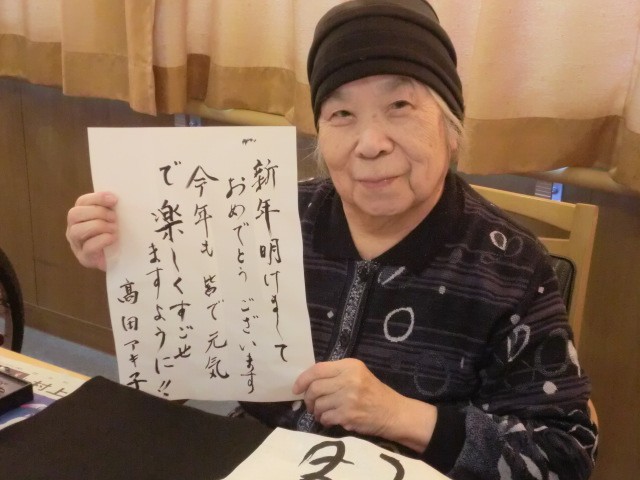 新年明けまして
おめでとうございます
今年も皆で元気
で楽しくすごせ
ますように!!
高田アキ子
村上